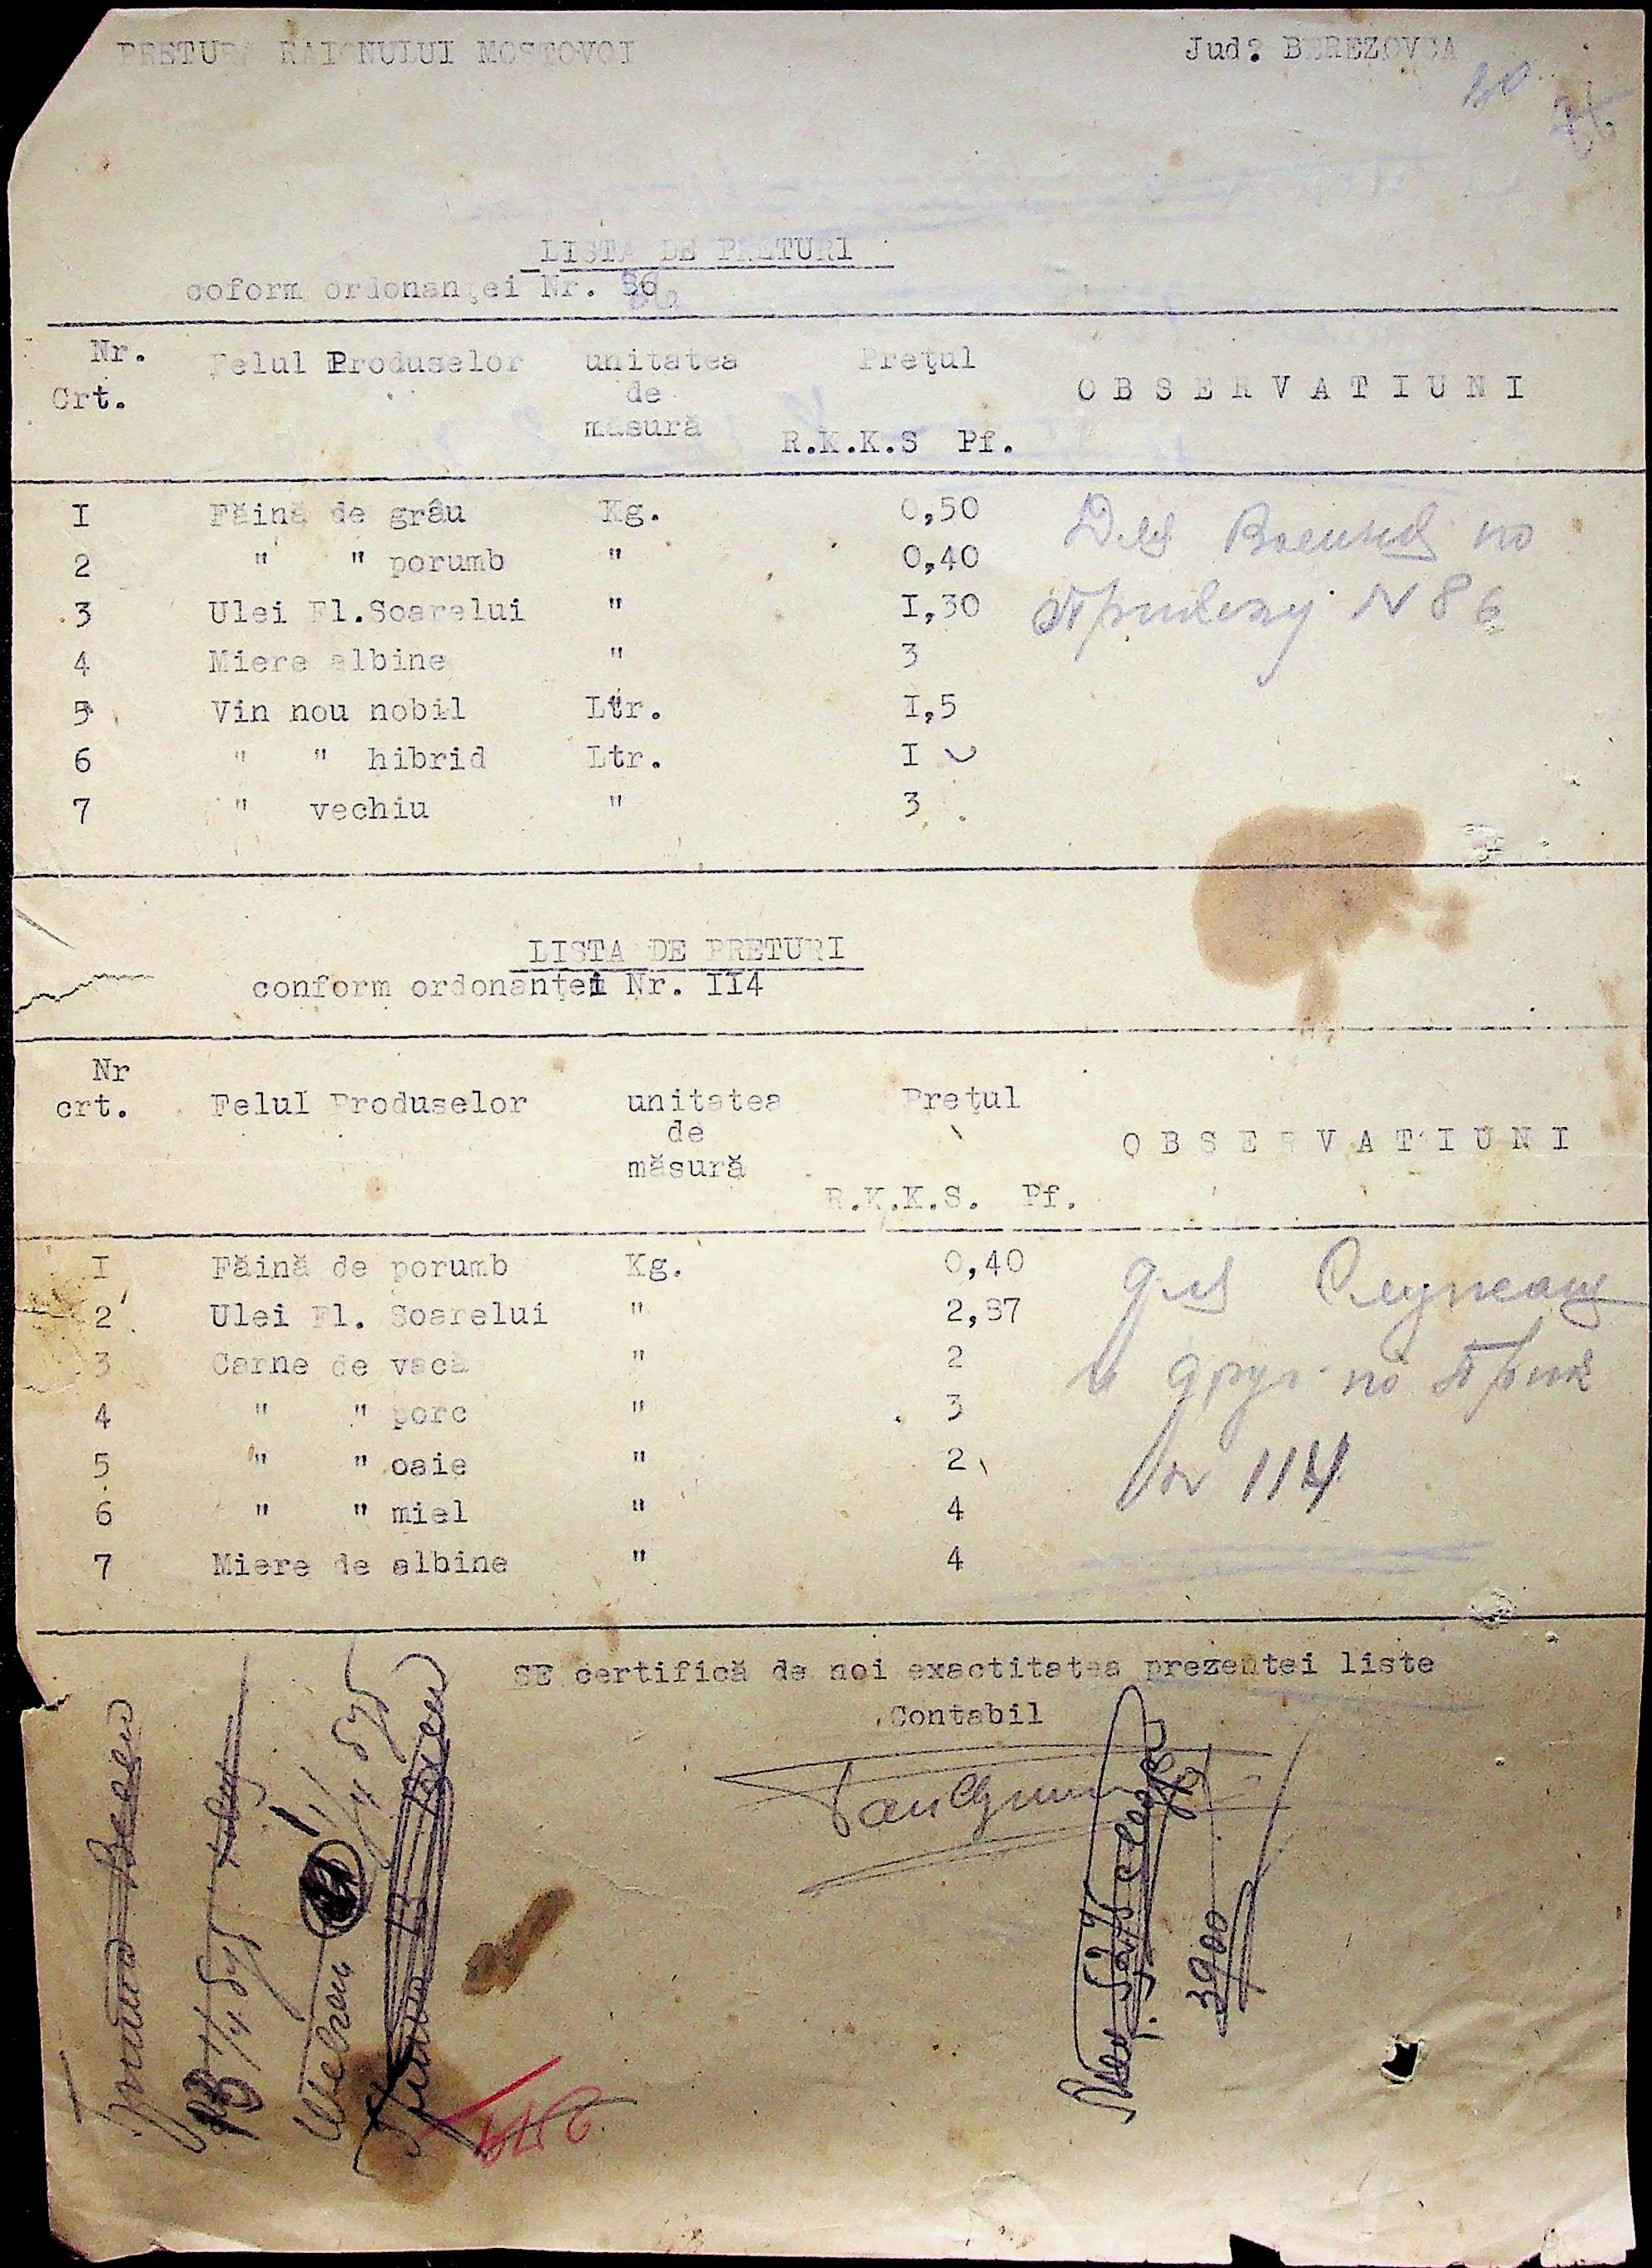 PRETURA RAIONULUI MOSTOVOI Jud: BEREZOVCA
LISTA DE PRETURI
coform ordonanţei Nr. 56
Nr. Crt. Felul Produselor unitatea de masură Preţul R.K.K.S Pf. OBSERVATIUNI
I Făină de grâu Kg. 0,50
2 " " porumb " 0,40
3 Ulei Fl.Soarelui " I,30
4 Miere albine " 3
5 Vin nou nobil Ltr. I,5
6 " " hibrid Ltr. I
7 " vechiu " 3
Для Военных по
Приказу N 86
LISTA DE PRETURI
conform ordonanţei Nr. II4
Nr crt. FeluI Produselor unitatea de măsură Preţul R.K.K.S. Pf. OBSERVATIUNI
I Făină de porumb Kg. 0,40
2 Ulei Fl. Soarelui " 2,87
3 Carne de vacă " 2
4 " " porc " 3
5 " " oaie " 2
6 " " miel " 4
7 Miere de albine " 4
для
и друг по Прик
N 114
SE certifică de noi exactitatea prezentei liste
Contabil
3900